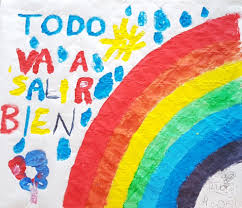 TODO
VA A
SALIR
BIEN